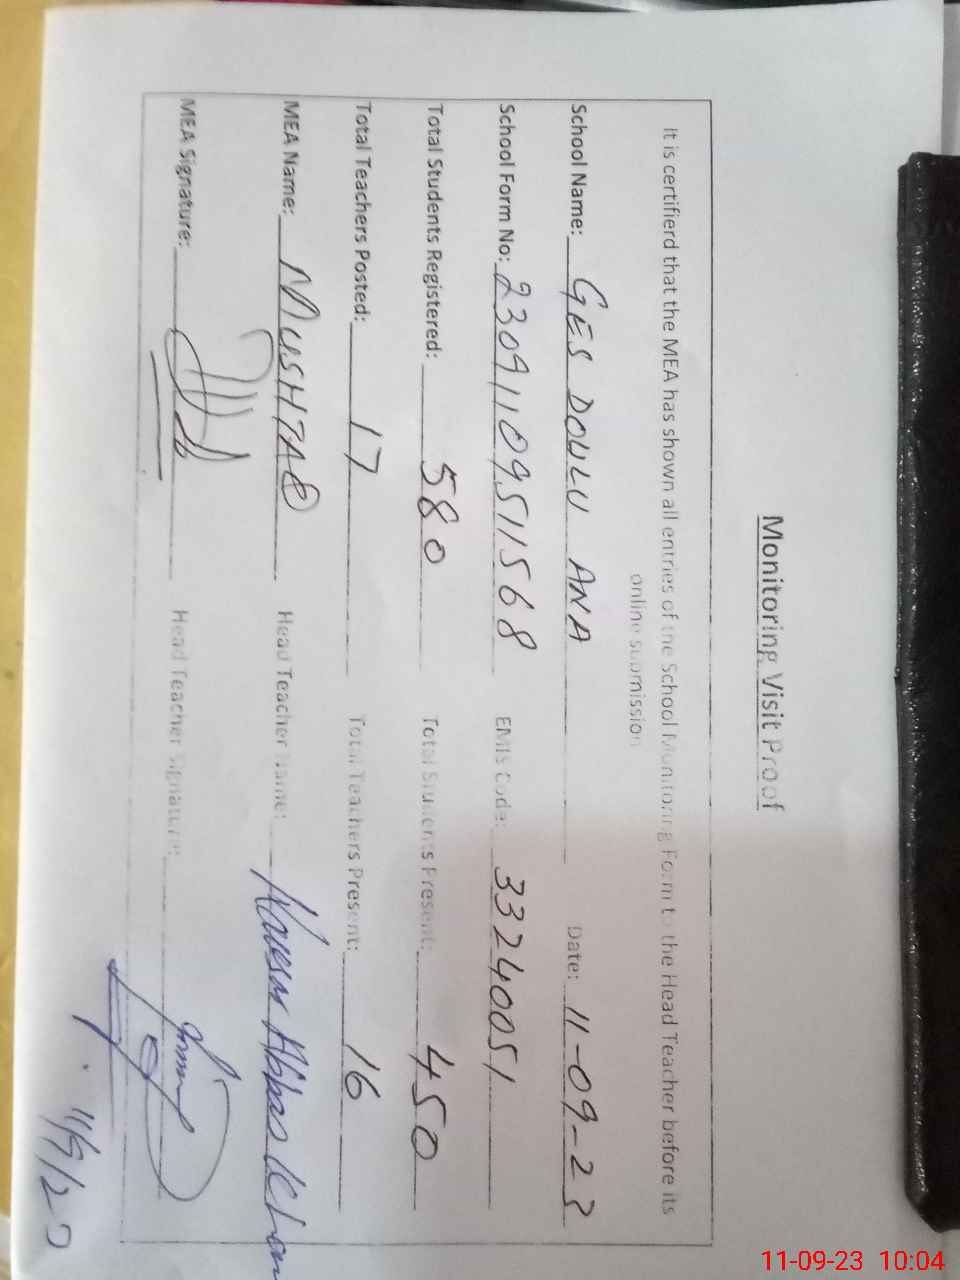 Monitoring Visit Proof
It is certifierd that the MEA has shown all entries of the School Monitoring Form to the Head Teacher before its
online submission
School Name: GES DOULU ANA Date: 11-09-23
School Form No: 23091109511568 EMIS Code: 33240051
Total Students Registered: 580 Total Students Present: 450
Total Teachers Posted: 17 Total Teachers Present: 16
MEA Name: MUSHTAQ Head Teacher Name: Abbas Khan
MEA Signature: Head Teacher Signature:
11/9/23
11-09-23 10:04